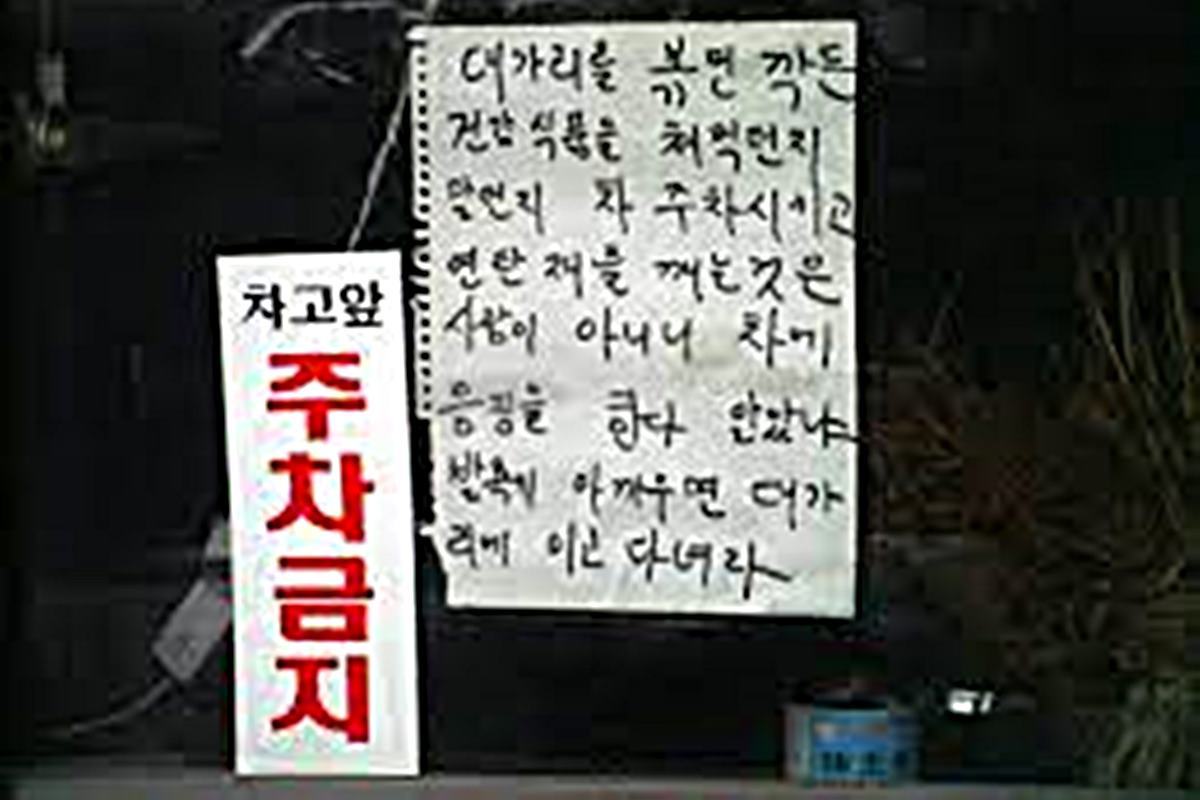 차고앞
주차금지
대가리를 볶던 깍든
건강식품을 처먹던지
말던지 차 주차시키고
연탄재를 깨는것은
사람이 아니니 차에
응징을 한다 알았냐
발통이 아까우면 대가
리에 이고 다녀라